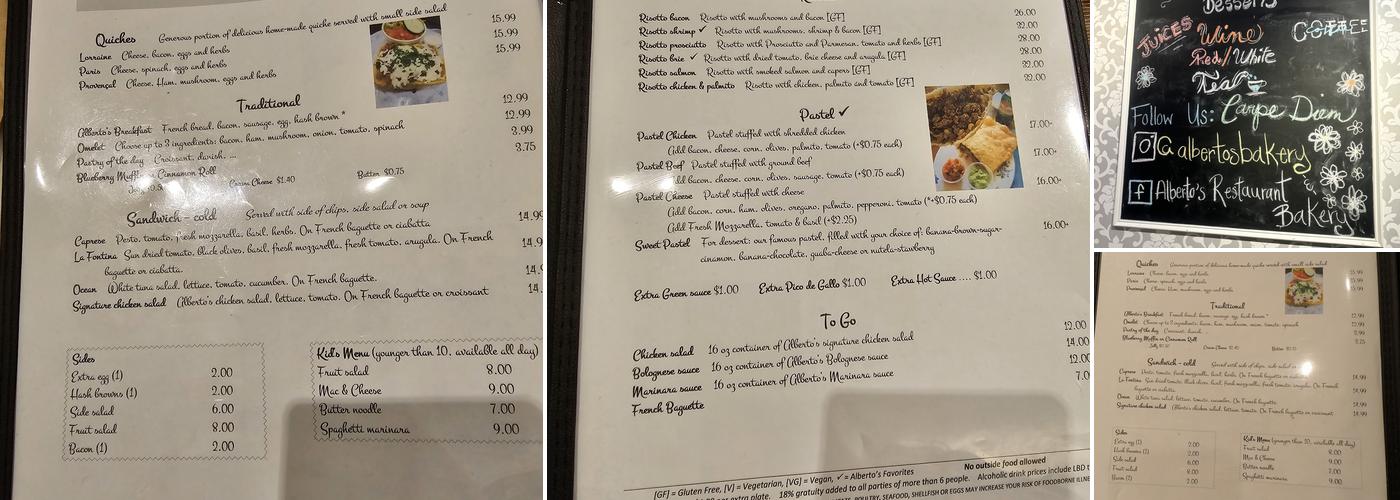 Quiches Generous portion of delicious home-made quiche served with small side salad
Lorraine Cheese, bacon, eggs and herbs 15.99
Paris Cheese, spinach, eggs and herbs 15.99
Provençal Cheese, Ham, mushroom, eggs and herbs 15.99
Traditional
Alberto's Breakfast French bread, bacon, sausage, egg, hash brown * 12.99
Omelet Choose up to 3 ingredients: bacon, ham, mushroom, onion, tomato, spinach 12.99
Pastry of the day Croissant, danish, ... 3.99
Blueberry Muffin or Cinnamon Roll 3.75
Cream Cheese $1.40 Butter $0.75
Sandwich - cold Served with side of chips, side salad or soup
Caprese Pesto, tomato, fresh mozzarella, basil, herbs. On French baguette or ciabatta 14.99
La Fontina Sun dried tomato, black olives, basil, fresh mozzarella, fresh tomato, arugula. On French 14.9
baguette or ciabatta.
Ocean White tuna salad, lettuce, tomato, cucumber. On French baguette. 14.
Signature chicken salad Alberto's chicken salad, lettuce, tomato. On French baguette or croissant 14.
Sides
Extra egg (1) 2.00
Hash browns (1) 2.00
Side salad 6.00
Fruit salad 8.00
Bacon (1) 2.00
Kid's Menu (younger than 10, available all day)
Fruit salad 8.00
Mac & Cheese 9.00
Butter noodle 7.00
Spaghetti marinara 9.00
Risotto bacon Risotto with mushrooms and bacon [GF] 26.00
Risotto shrimp ✓ Risotto with mushrooms, shrimp & bacon [GF] 32.00
Risotto prosciutto Risotto with Prosciutto and Parmesan, tomato and herbs [GF] 28.00
Risotto brie ✓ Risotto with dried tomato, brie cheese and arugula [GF] 28.00
Risotto salmon Risotto with smoked salmon and capers [GF] 32.00
Risotto chicken & palmito Risotto with chicken, palmito and tomato [GF] 32.00
Pastel ✓
Pastel Chicken Pastel stuffed with shredded chicken 17.00+
(Add bacon, cheese, corn, olives, palmito, tomato (+$0.75 each)
Pastel Beef Pastel stuffed with ground beef 17.00+
(Add bacon, cheese, corn, olives, sausage, tomato (+$0.75 each)
Pastel Cheese Pastel stuffed with cheese 16.00+
(Add bacon, corn, ham, olives, oregano, palmito, pepperoni, tomato (*+$0.75 each)
(Add Fresh Mozzarella, tomato & basil (+$2.25)
Sweet Pastel For dessert: our famous pastel, filled with your choice of: banana-brown-sugar- 16.00+
cinamon, banana-chocolate, guaba-cheese or nutela-stawberry
Extra Green sauce $1.00 Extra Pico de Gallo $1.00 Extra Hot Sauce .... $1.00
To Go
Chicken salad 16 oz container of Alberto's signature chicken salad 12.00
Bolognese sauce 16 oz container of Alberto's Bolognese sauce 14.00
Marinara sauce 16 oz container of Alberto's Marinara sauce 12.00
French Baguette 7.0
No outside food allowed
[GF] = Gluten Free, [V] = Vegetarian, [VG] = Vegan, ✓ = Alberto's Favorites
per extra plate. 18% gratuity added to all parties of more than 6 people. Alcoholic drink prices include LBD
POULTRY, SEAFOOD, SHELLFISH OR EGGS MAY INCREASE YOUR RISK OF FOODBORNE
Desserts
JUICES Wine COFFEE
Red//White
Tea
Follow Us: Carpe Diem
@albertosbakery
f Alberto's Restaurant
Bakery
Quiches Generous portion of delicious home-made quiche served with small side salad
Lorraine Cheese, bacon, eggs and herbs 15.99
Paris Cheese, spinach, eggs and herbs 15.99
Provençal Cheese, Ham, mushroom, eggs and herbs 15.99
Traditional
Alberto's Breakfast French bread, bacon, sausage, egg, hash brown * 12.99
Omelet Choose up to 3 ingredients: bacon, ham, mushroom, onion, tomato, spinach 12.99
Pastry of the day Croissant, danish, ... 3.99
Blueberry Muffin or Cinnamon Roll
Sandwich - cold Served with side of chips, side salad
Caprese Pesto, tomato, fresh mozzarella, basil, herbs. On French baguette or ciabatta 14.99
La Fontina Sun dried tomato, black olives, basil, fresh mozzarella, fresh tomato, arugula. On French 14.99
baguette or ciabatta.
Ocean White tuna salad, lettuce, tomato, cucumber. On French baguette. 14.99
Signature chicken salad Alberto's chicken salad, lettuce, tomato. On French baguette or croissant 14.99
Sides
Extra egg (1) 2.00
Hash browns (1) 2.00
Side salad 6.00
Fruit salad 8.00
Bacon (1) 2.00
Kid's Menu (younger than 10, available all day)
Fruit salad 8.00
Mac & Cheese 9.00
Butter noodle 7.00
Spaghetti marinara 9.00